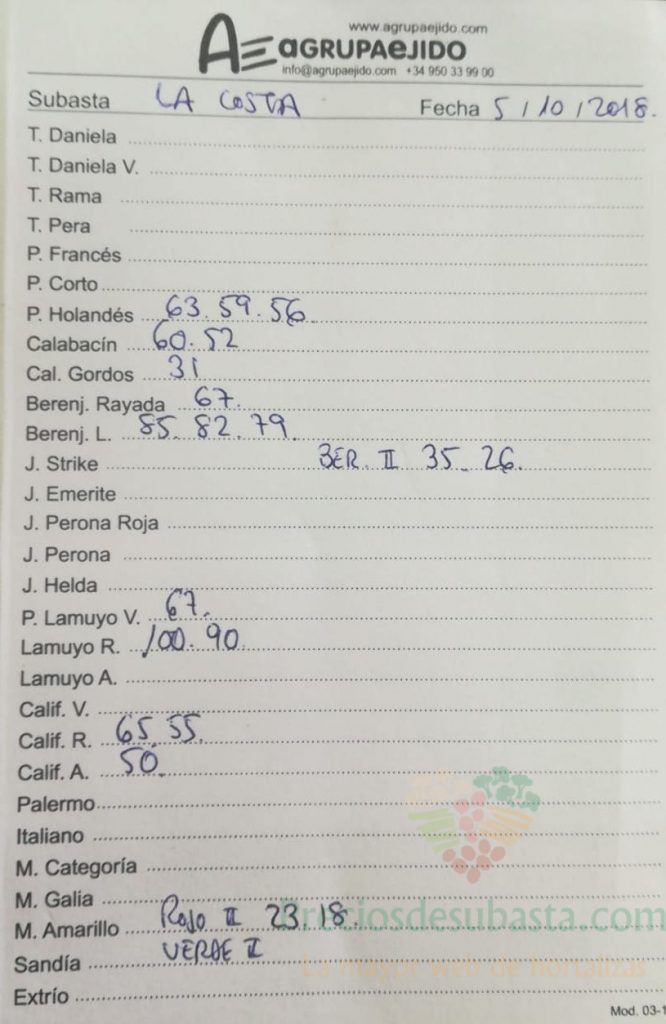 www.agrupaejido.com
AE AGRUPAEJIDO
info@agrupaejido.com +34 950 33 99 00
Subasta LA COSTA Fecha 5/10/2018.
T. Daniela
T. Daniela V.
T. Rama
T. Pera
P. Francés
P. Corto
P. Holandés 63.59.56
Calabacín 60.52
Cal. Gordos 31
Berenj. Rayada 67.
Berenj. L. 85.82.79.
J. Strike BER. II 35.26.
J. Emerite
J. Perona Roja
J. Perona
J. Helda
P. Lamuyo V. 67.
Lamuyo R. 100.90
Lamuyo A.
Calif. V.
Calif. R. 65.55.
Calif. A. 50.
Palermo
Italiano
M. Categoría
M. Galia
M. Amarillo ROJO II 23.18.
Preciosdesubasta.com
Sandía VERDE II
La mayor web de hortalizas
Extrío
Mod. 03-1